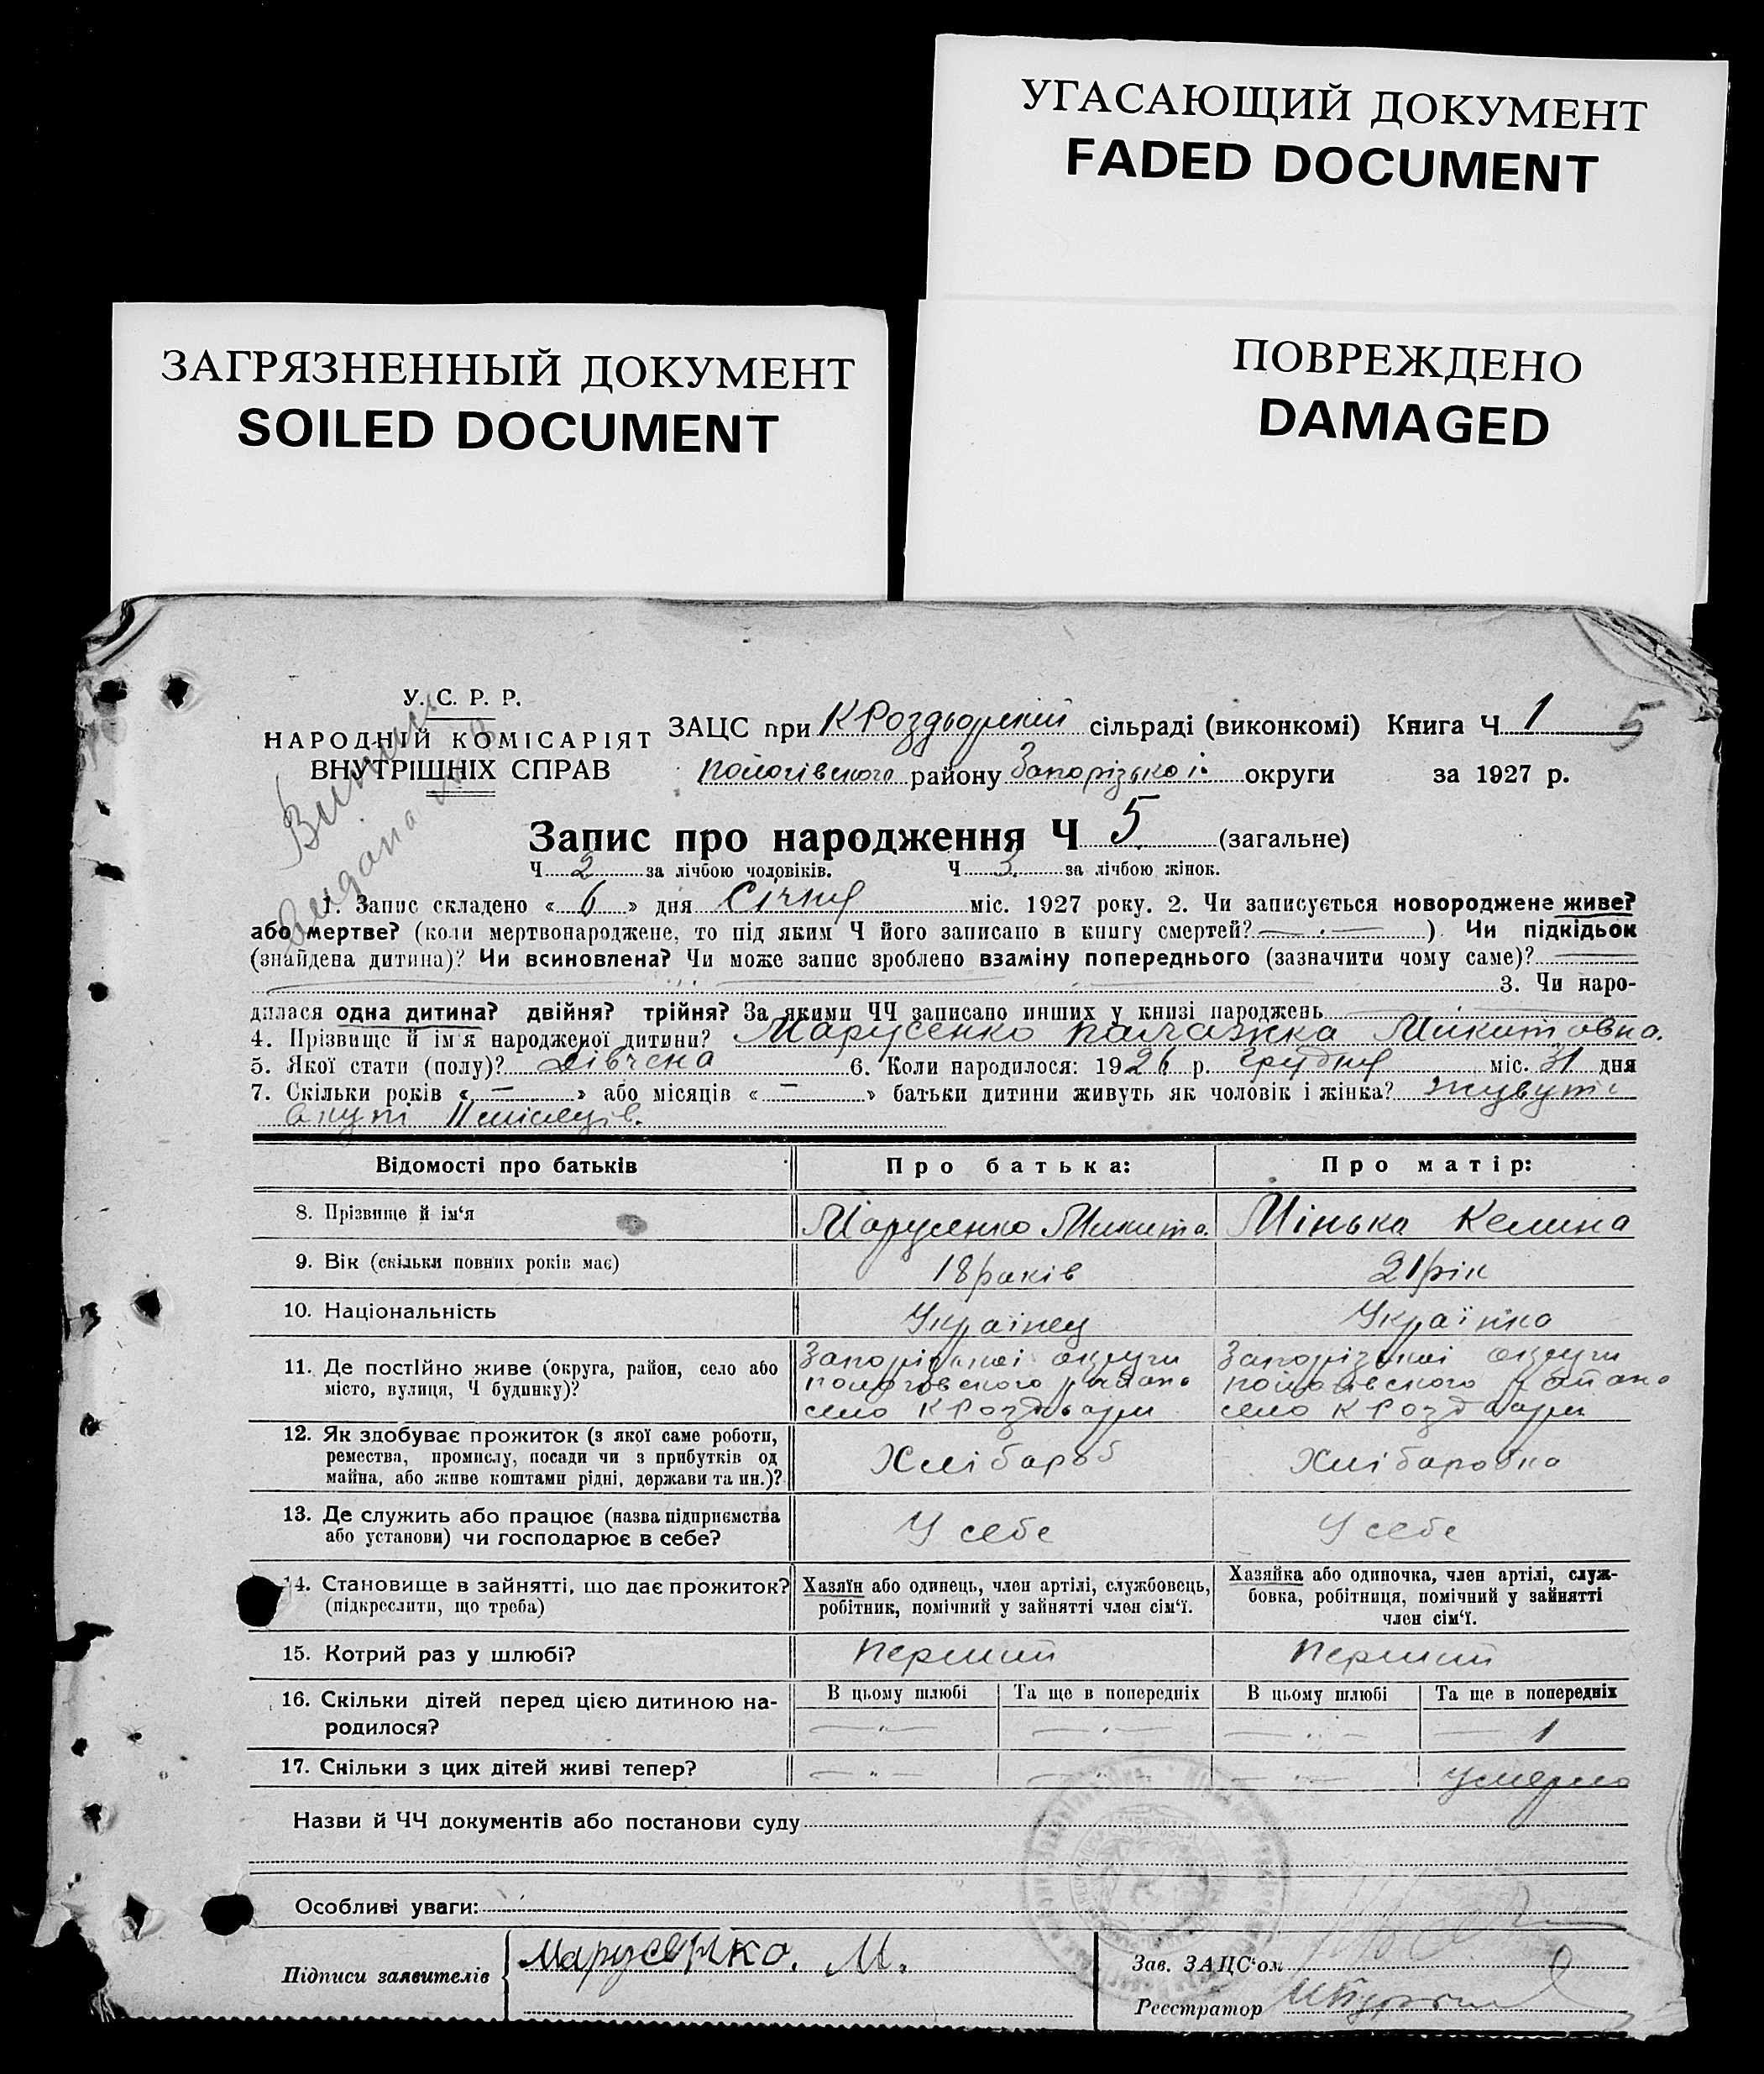 УГАСАЮЩИЙ ДОКУМЕНТ
FADED DOCUMENT
ЗАГРЯЗНЕННЫЙ ДОКУМЕНТ
SOILED DOCUMENT
ПОВРЕЖДЕНО
DAMAGED
У. С. Р. Р.
НАРОДНІЙ КОМІСАРІЯТ
ВНУТРІШНІХ СПРАВ
ЗАЦС при К Роздьорській сільраді (виконкомі) Книга Ч 1 5
пологівского району Запорізькоі округи за 1927 р.
Запис про народження Ч 5 (загальне)
Ч 2 за лічбою чоловіків. Ч 3 за лічбою жінок.
1. Запис складено « 6 » дня Січня міс. 1927 року. 2. Чи записується новороджене живе?
або мертве? (коли мертвонароджене, то під яким Ч його записано в книгу смертей? — ) Чи підкідьок
(знайдена дитина)? Чи всиновлена? Чи може запис зроблено взаміну попереднього (зазначити чому саме)? —
3. Чи наро-
дилася одна дитина? двійня? трійня? За якими ЧЧ записано инших у книзі народжень
4. Прізвище й ім'я народженої дитини? Марусенко палажка Микитовна.
5. Якої стати (полу)? Дівчена 6. Коли народилося: 1926 р. грудня міс. 31 дня
7. Скільки років « — » або місяців « — » батьки дитини живуть як чоловік і жінка? живуть
вкупі 11 місяців.
Відомості про батьків Про батька: Про матір:
8. Прізвище й ім'я Марусенко Микита. Мінька Келина
9. Вік (скільки повних років має) 18 років 21 рік
10. Національність Українец Українка
11. Де постійно живе (округа, район, село або місто, вулиця, Ч будинку)?
Запорізькоі округи Запорізькоі округи
пологовского района пологівского района
село К Роздьори село К Роздори
12. Як здобуває прожиток (з якої саме роботи,
ремества, промислу, посади чи з прибутків од
майна, або живе коштами рідні, держави та ин.)?
Хлібароб Хлібаробка
13. Де служить або працює (назва підприємства
або установи) чи господарює в себе?
У себе У себе
14. Становище в зайнятті, що дає прожиток?
(підкреслити, що треба)
Хазяїн або одинець, член артілі, службовець,
робітник, помічний у зайнятті член сім'ї.
Хазяйка або одиночка, член артілі, служ-
бовка, робітниця, помічний у зайнятті
член сім'ї.
15. Котрий раз у шлюбі? Перший Перший
16. Скільки дітей перед цією дитиною на-
родилося?
В цьому шлюбі Та ще в попередніх В цьому шлюбі Та ще в попередніх
— — — 1
17. Скільки з цих дітей живі тепер? — — — умерло
Назви й ЧЧ документів або постанови суду
Особливі уваги:
Підписи заявителів Марусенко. М.
Зав. ЗАЦС'ом
Реєстратор